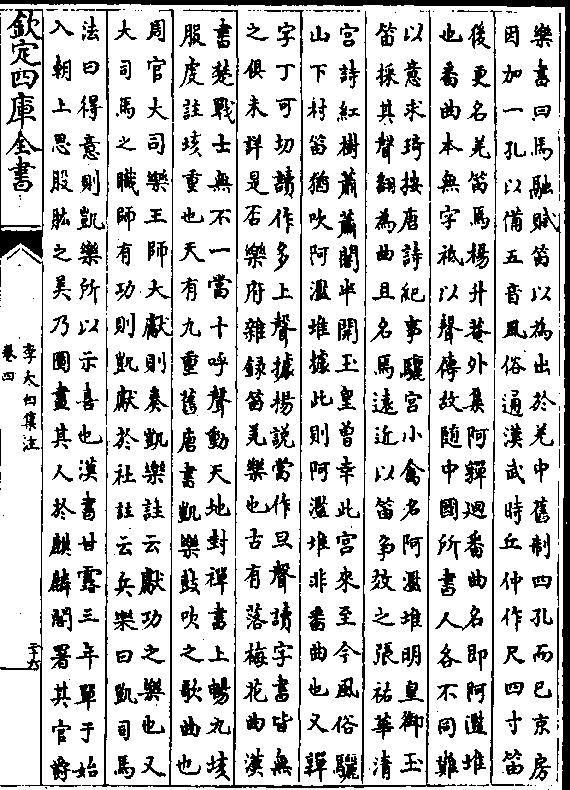 樂書曰馬融賦笛以為出於羌中舊制四孔而已京房
因加一孔以備五音風俗通漢武時丘仲作尺四寸笛
後更名羌笛焉楊升菴外集阿軃迴番曲名即阿濫堆
也番曲本無字祗以聲傳故隨中國所書人各不同難
以意求琦按唐詩紀事驪宮小禽名阿濫堆明皇御玉
笛採其聲翻為曲且名焉遠近以笛争效之張祜華清
宮詩紅樹蕭蕭閣半開玉皇曾幸此宮來至今風俗驪
山下村笛猶吹阿濫堆據此則阿濫堆非番曲也又軃
字丁可切讀作多上聲據楊說當作旦聲讀字書皆無
之俱未詳是否樂府雜録笛羌樂也古有落梅花曲漢
書楚戰士無不一當十呼聲動天地封禪書上暢九垓
服虔註垓重也天有九重舊唐書凱樂鼓吹之歌曲也
周官大司樂王師大獻則奏凱樂註云獻功之樂也又
大司馬之職師有功則凱獻於社註云兵樂曰凱司馬
法曰得意則凱樂所以示喜也漢書甘露三年單于始
入朝上思股肱之美乃圖畫其人於麒麟閣署其官爵
欽定四庫全書
李太白集注
卷四
二十六